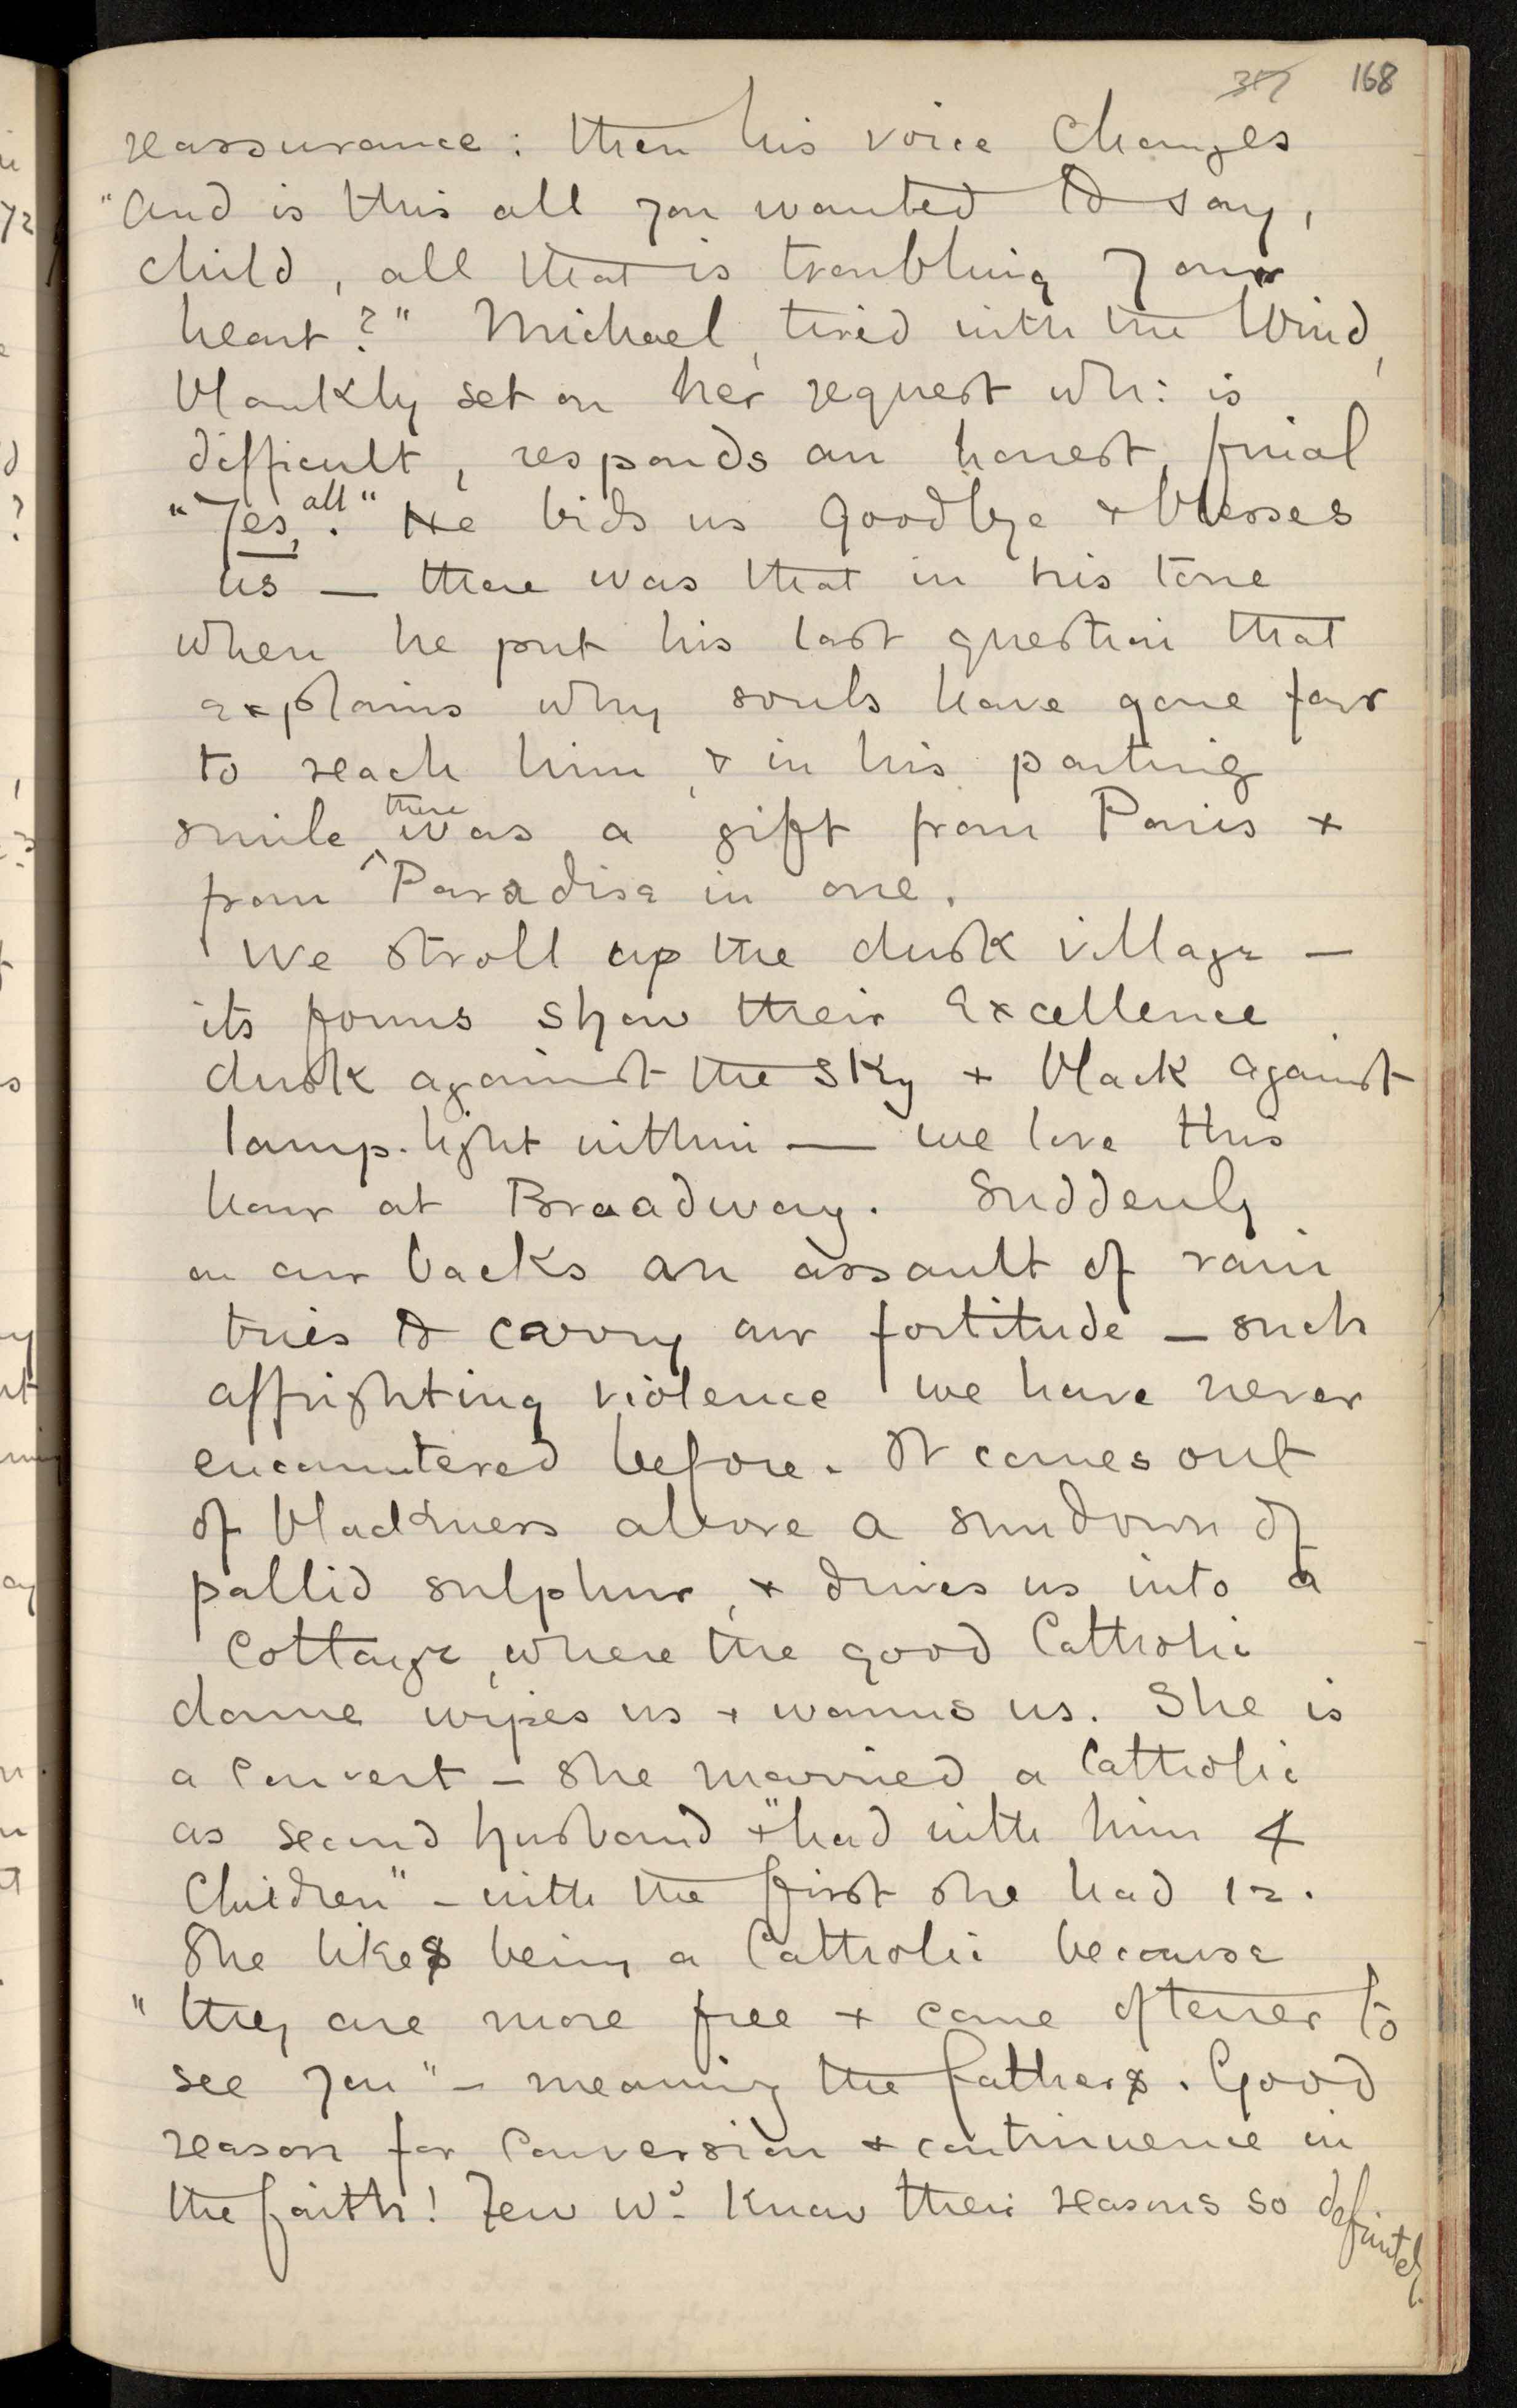 168
reassurance: then his voice changes
"And is this all you wanted to say,
child, all that is troubling your
heart?" Michael, tired with the Wind,
blankly set on her request wh: is
difficult, responds an honest, final
"Yes, all." He bids us goodbye + blesses
us — there was that in his tone
when he put his last question that
explains why souls have gone far
to reach him, + in his parting
smile there was a gift from Paris +
from Paradise in one.
We stroll up the dusk village —
its forms show their excellence
dusk against the sky + black against
lamp-light within — we love this
hour at Broadway. Suddenly
on our backs an assault of rain
tries to carry our fortitude — such
affrighting violence we have never
encountered before. It comes out
of blackness above a sundown of
pallid sulphur, + drives us into a
Cottage, where the good Catholic
dame wipes us + warms us. She is
a Convert — she married a Catholic
as second husband + "had with him 4
Children" — with the first she had 12.
She likes being a Catholic because
"they are more free + come oftener to
see you" — meaning the fathers. Good
reason for Conversion + continuence in
the faith! Few wd. know their reasons so definitely.